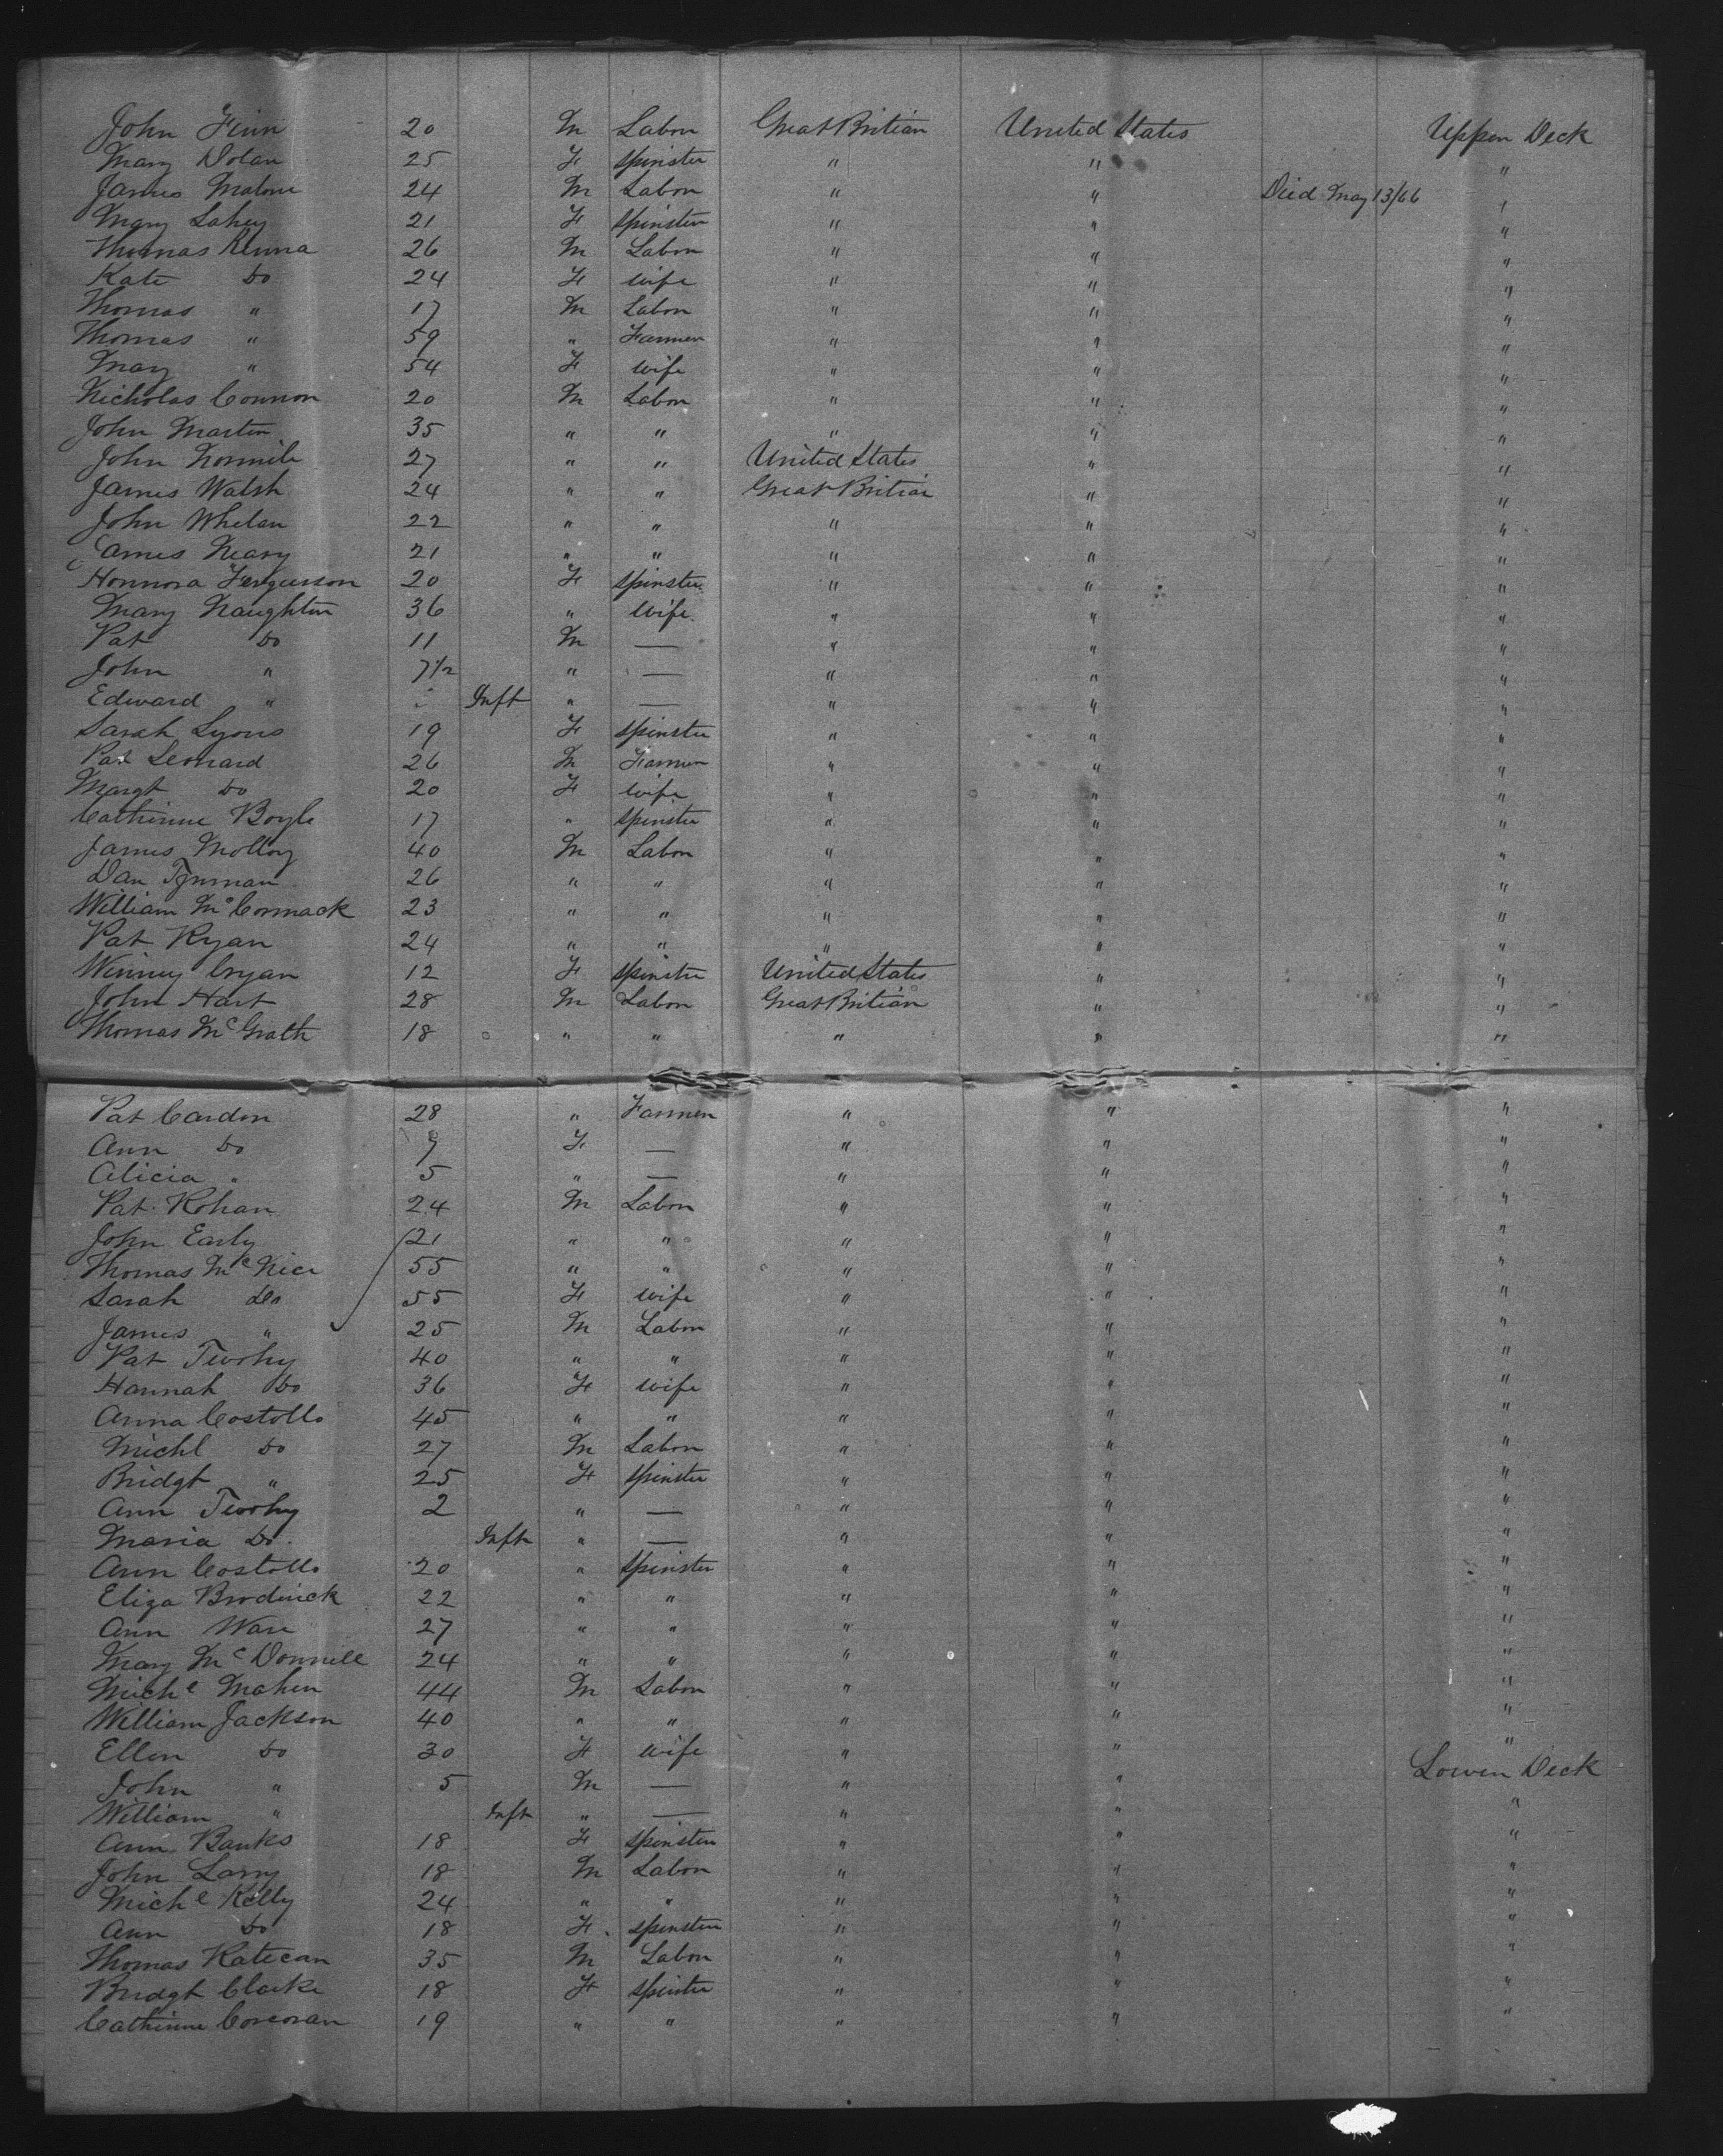 John Finn 20 M Labor Great Britian United States Upper Deck
Mary Dolan 25 F Spinster " " "
James Malone 24 M Labor " " Died May 13/66 "
Mary Lahey 21 F Spinster " " "
Thomas Kenna 26 M Labor " " "
Kate Do 24 F Wife " " "
Thomas " 17 M Labor " " "
Thomas " 59 " Farmer " " "
Mary " 54 F Wife " " "
Nicholas Connor 20 M Labor " " "
John Martin 35 " " " " "
John Normile 27 " " United States " "
James Walsh 24 " " Great Britian " "
John Whelan 22 " " " " "
James Neary 21 " " " " "
Honnora Fergusson 20 F Spinster " " "
Mary Naughton 36 " Wife " " "
Pat Do 11 M — " " "
John " 7 1/2 " — " " "
Edward " Inft " — " " "
Sarah Lyons 19 F Spinster " " "
Pat Leonard 26 M Farmer " " "
Margt Do 20 F Wife " " "
Catherine Boyle 17 " Spinster " " "
James Molloy 40 M Labor " " "
Dan 26 " " " " "
William McCormack 23 " " " " "
Pat Ryan 24 " " " " "
Winney Cryan 12 F Spinster United States " "
John Hart 28 M Labor Great Britian " "
Thomas McGrath 18 " " " " "
Pat Cardon 28 " Farmer " " "
Ann Do 7 F — " " "
Alicia " 5 " — " " "
Pat Rohan 24 M Labor " " "
John Early 21 " " " " "
Thomas 55 " " " " "
Sarah Do 55 F Wife " " "
James " 25 M Labor " " "
Pat Twohy 40 " " " " "
Hannah Do 36 F Wife " " "
Anna Costollo 45 " " " " "
Michl Do 27 M Labor " " "
Bridgt " 25 F Spinster " " "
Ann Twohy 2 " — " " "
Maria Do Inft " — " " "
Ann Costollo 20 " Spinster " " "
Eliza Broderick 22 " " " " "
Ann Ware 27 " " " " "
Mary McDonnell 24 " " " " "
Michl Maher 44 M Labor " " "
William Jackson 40 " " " " "
Ellen Do 30 F Wife " " "
John " 5 M — " " Lower Deck
William " Inft " — " " "
Ann Banks 18 F Spinster " " "
John Larry 18 M Labor " " "
Michl Kelly 24 " " " " "
Ann Do 18 F Spinster " " "
Thomas Ratecan 35 M Labor " " "
Bridgt Clarke 18 F Spinster " " "
Catherine Corcoran 19 " " " " "